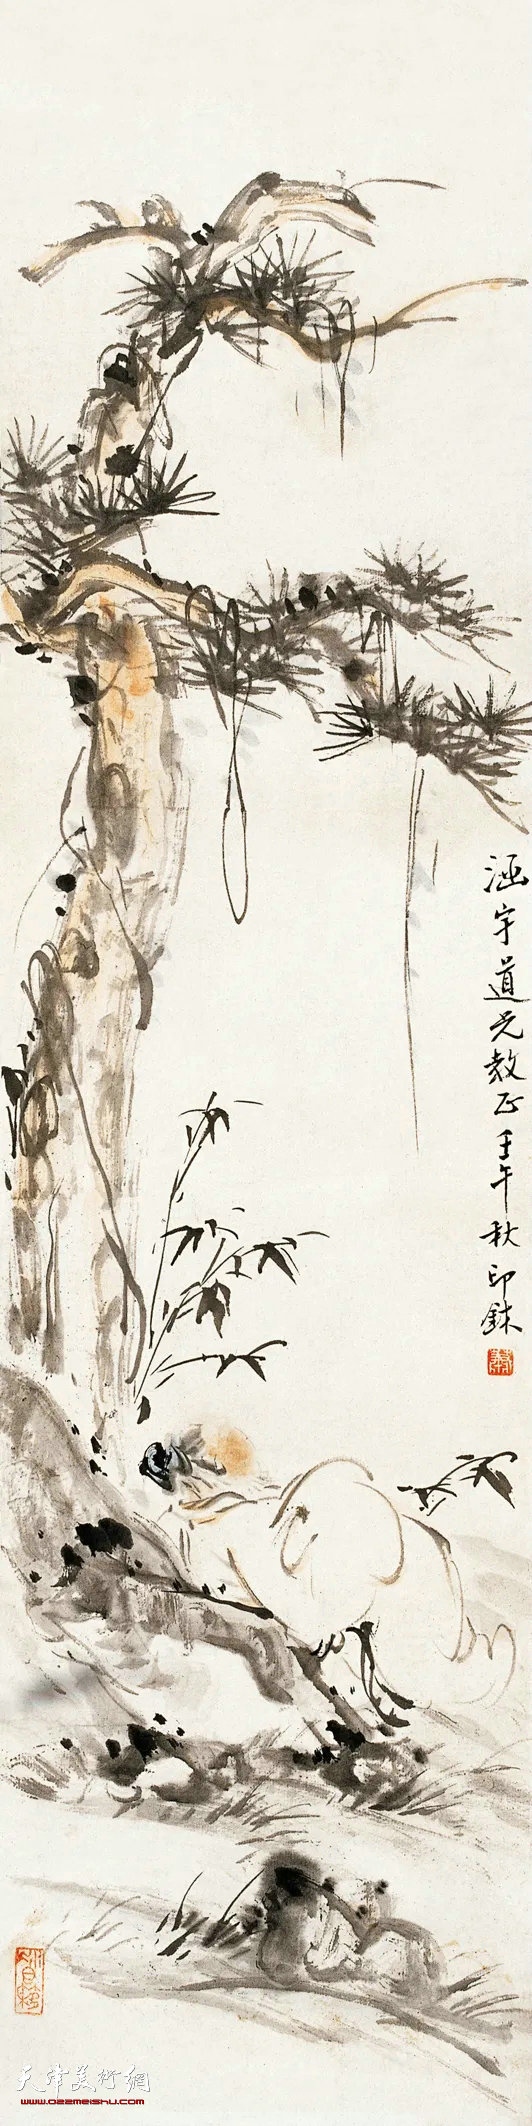 涵宇道兄教正壬午秋印鉢
天津美術網
www.022meishu.com